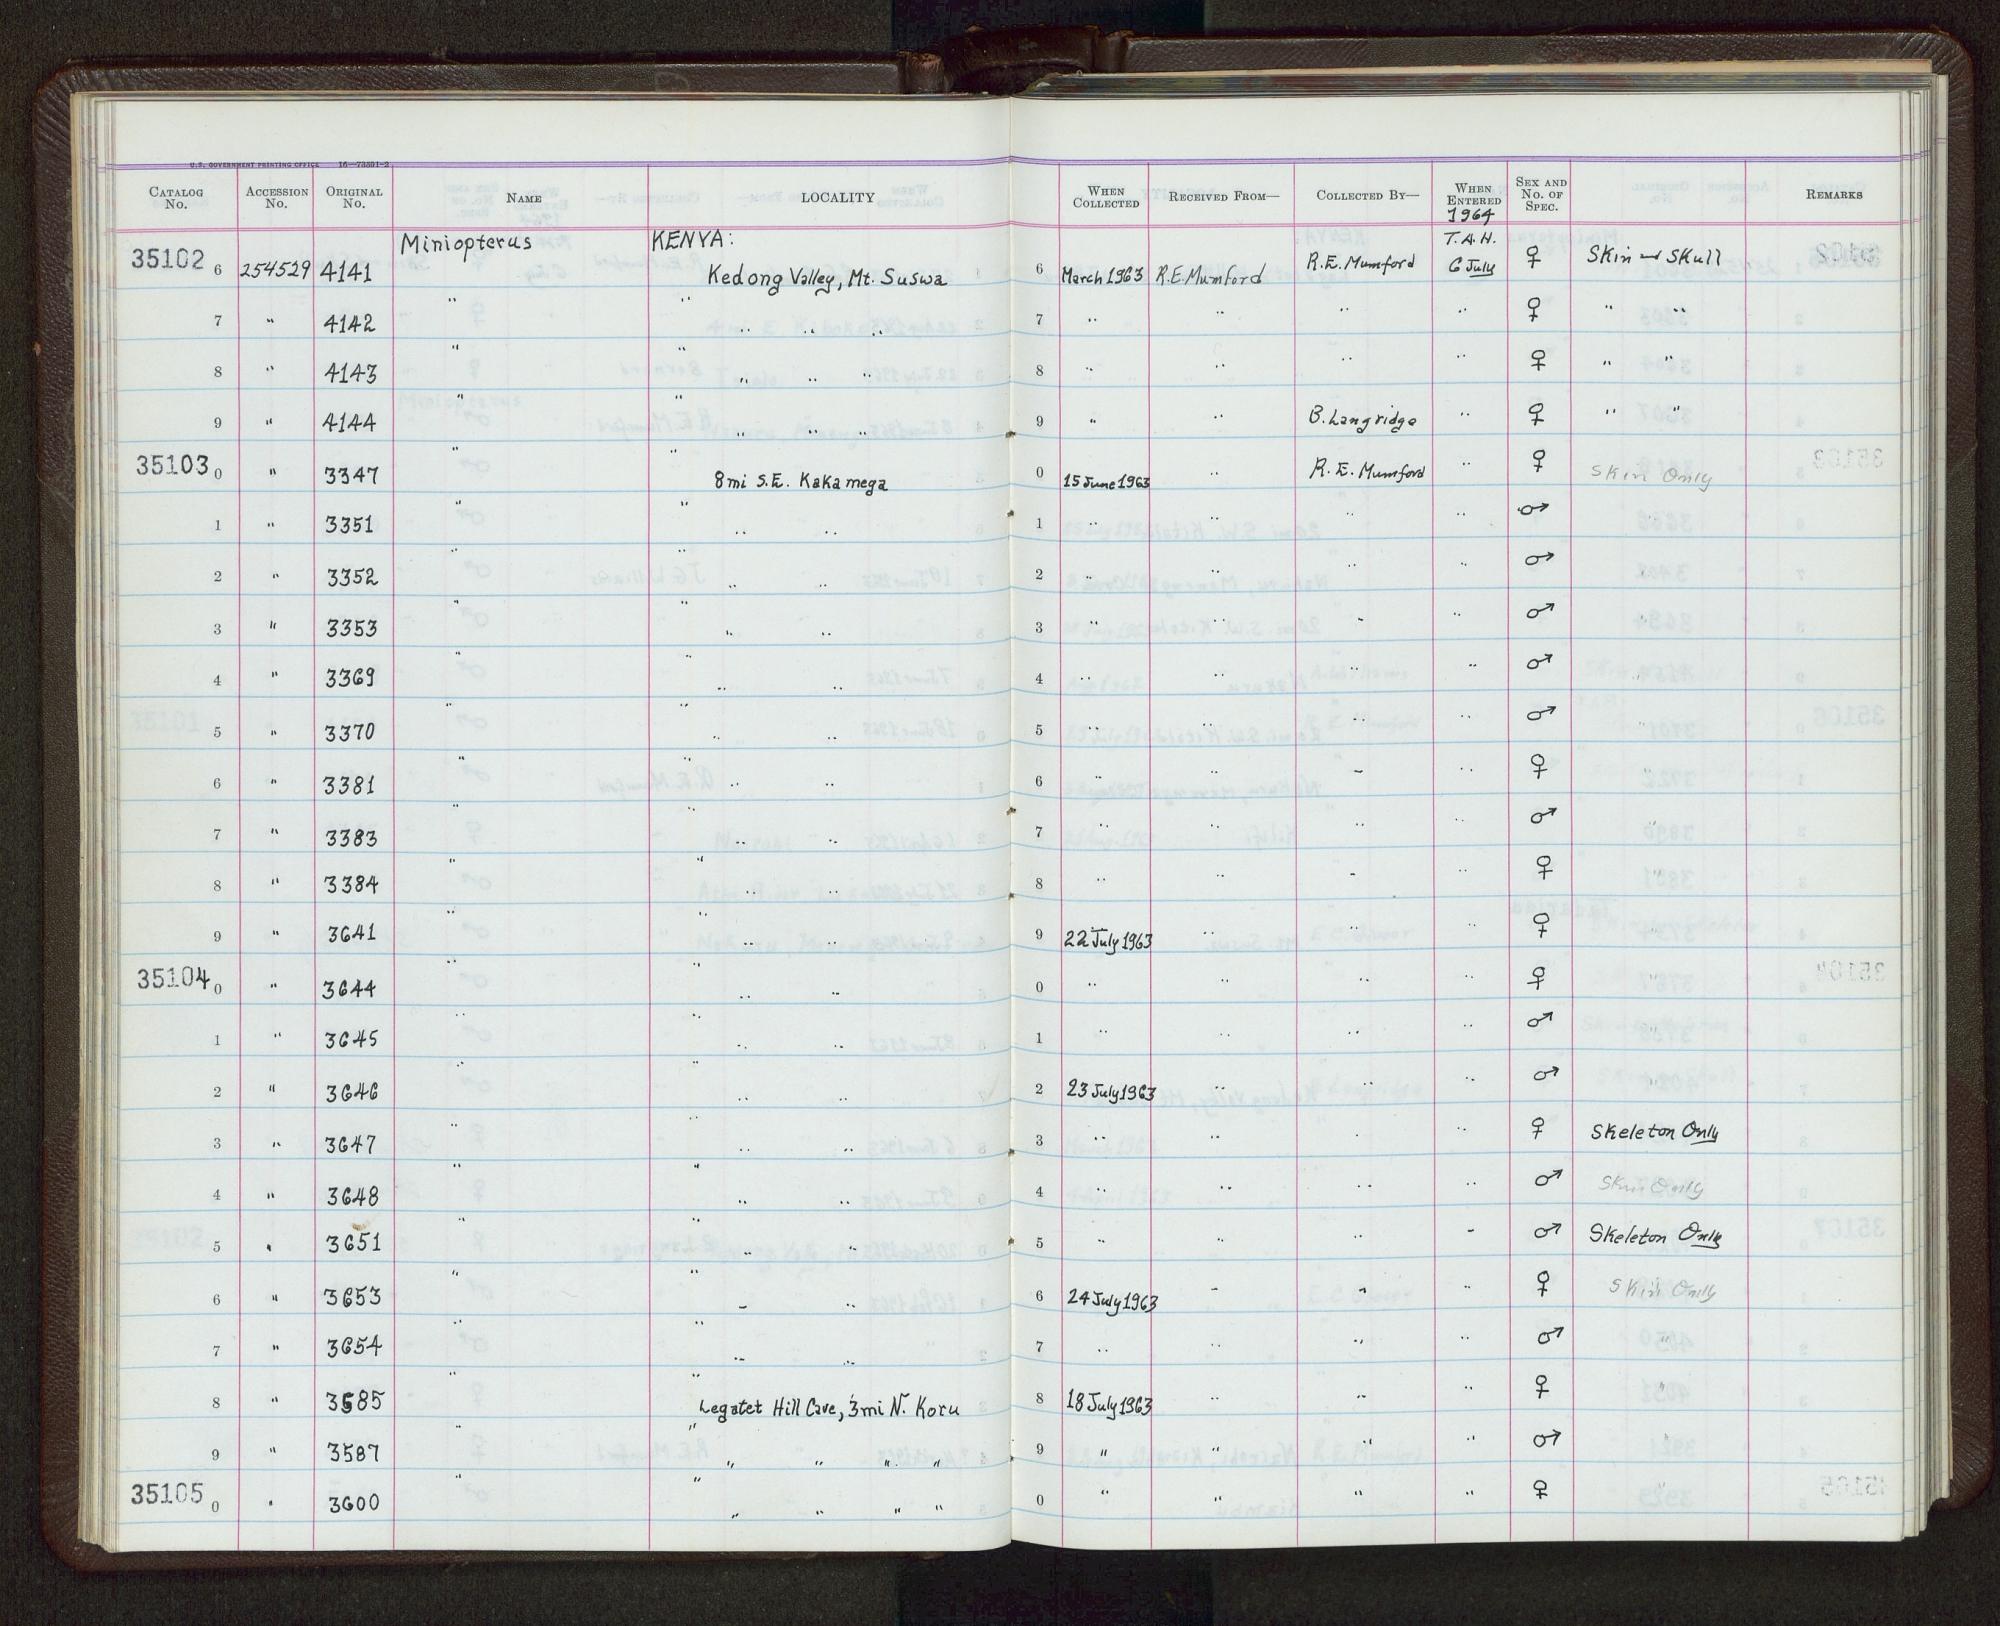 U.S. GOVERNMENT PRINTING OFFICE 16—73391-2
CATALOG No. ACCESSION No. ORIGINAL No. NAME LOCALITY WHEN COLLECTED RECEIVED FROM— COLLECTED BY— WHEN ENTERED 1964 SEX AND NO. OF SPEC. REMARKS
Miniopterus KENYA: T.A.H.
35102 6 254529 4141 Kedong Valley, Mt. Suswa 6 March 1963 R.E. Mumford R.E. Mumford 6 July ♀ Skin and Skull
7 " 4142 " " " " " 7 " " " " ♀ " "
8 " 4143 " " " " " 8 " " " " ♀ " "
9 " 4144 " " " " " 9 " " B. Langridge " ♀ " "
35103 0 " 3347 " " 8 mi S.E. Kakamega 0 15 June 1963 " R. E. Mumford " ♀ Skin Only
1 " 3351 " " " " 1 " " " " ♂
2 " 3352 " " " " 2 " " " " ♂
3 " 3353 " " " " 3 " " " " ♂
4 " 3369 " " " " 4 " " " " ♂ "
5 " 3370 " " " " 5 " " " " ♂ "
6 " 3381 " " " " 6 " " " " ♀
7 " 3383 " " " " 7 " " " " ♂ "
8 " 3384 " " " " 8 " " " " ♀
9 " 3641 " " " " 9 22 July 1963 " " " ♀
35104 0 " 3644 " " " " 0 " " " " ♀ "
1 " 3645 " " " " 1 " " " " ♂ "
2 " 3646 " " " " 2 23 July 1963 " " " ♂
3 " 3647 " " " " 3 " " " " ♀ Skeleton Only
4 " 3648 " " " " 4 " " " " ♂ Skin Only
5 " 3651 " " " " 5 " " " " ♂ Skeleton Only
6 " 3653 " " " " 6 24 July 1963 " " " ♀ Skin Only
7 " 3654 " " " " 7 " " " " ♂ "
8 " 3585 " " Legatet Hill Cave, 3 mi N. Koru 8 18 July 1963 " " " ♀ "
9 " 3587 " " " " " " 9 " " " " ♂
35105 0 " 3600 " " " " " " 0 " " " " ♀